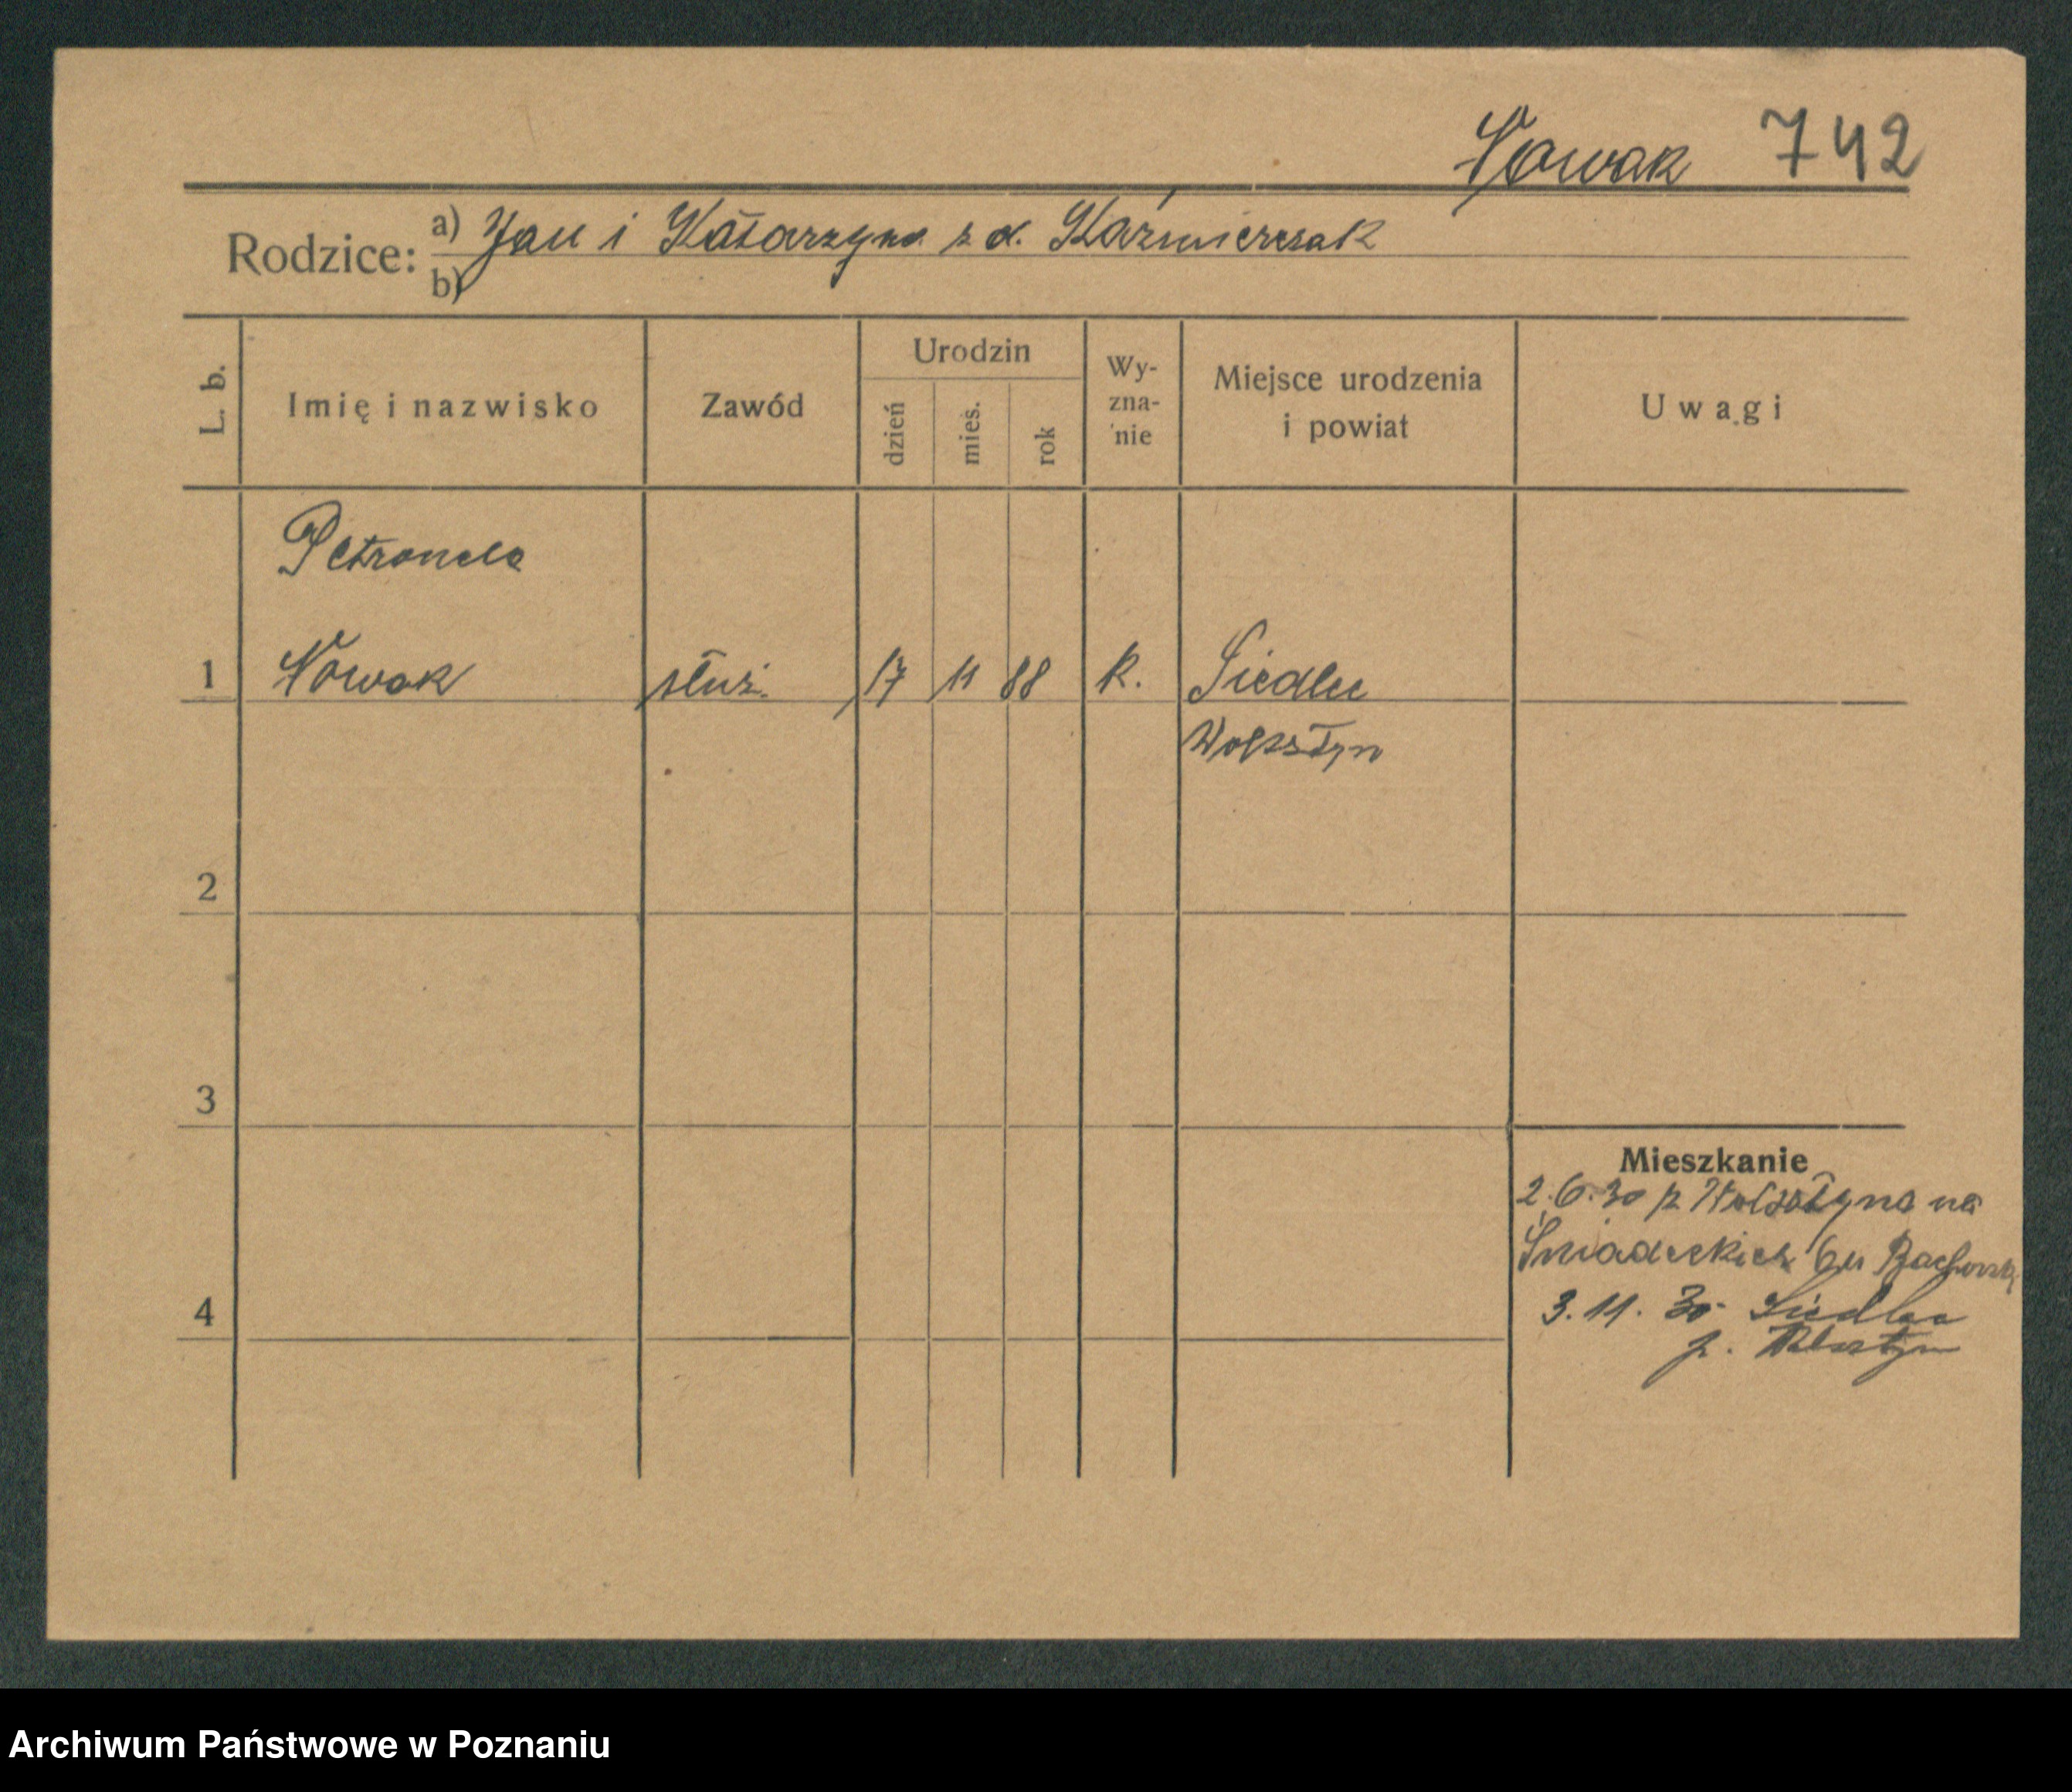 Nowak 742
Rodzice: a) Jan i Katarzyna z d. Kaźmierczak
b)
L. b.
Imię i nazwisko
Zawód
Urodzin
dzień
mies.
rok
Wy-
zna-
nie
Miejsce urodzenia
i powiat
Uwagi
Petronela
1 Nowak służ. 17 11 88 k. Siedlec
Wolsztyn
2
3
Mieszkanie
2.6.30 z Wolsztyna na
Śniadeckich 6 u
3.11.30 Siedlec
p. Wolsztyn
4
Archiwum Państwowe w Poznaniu